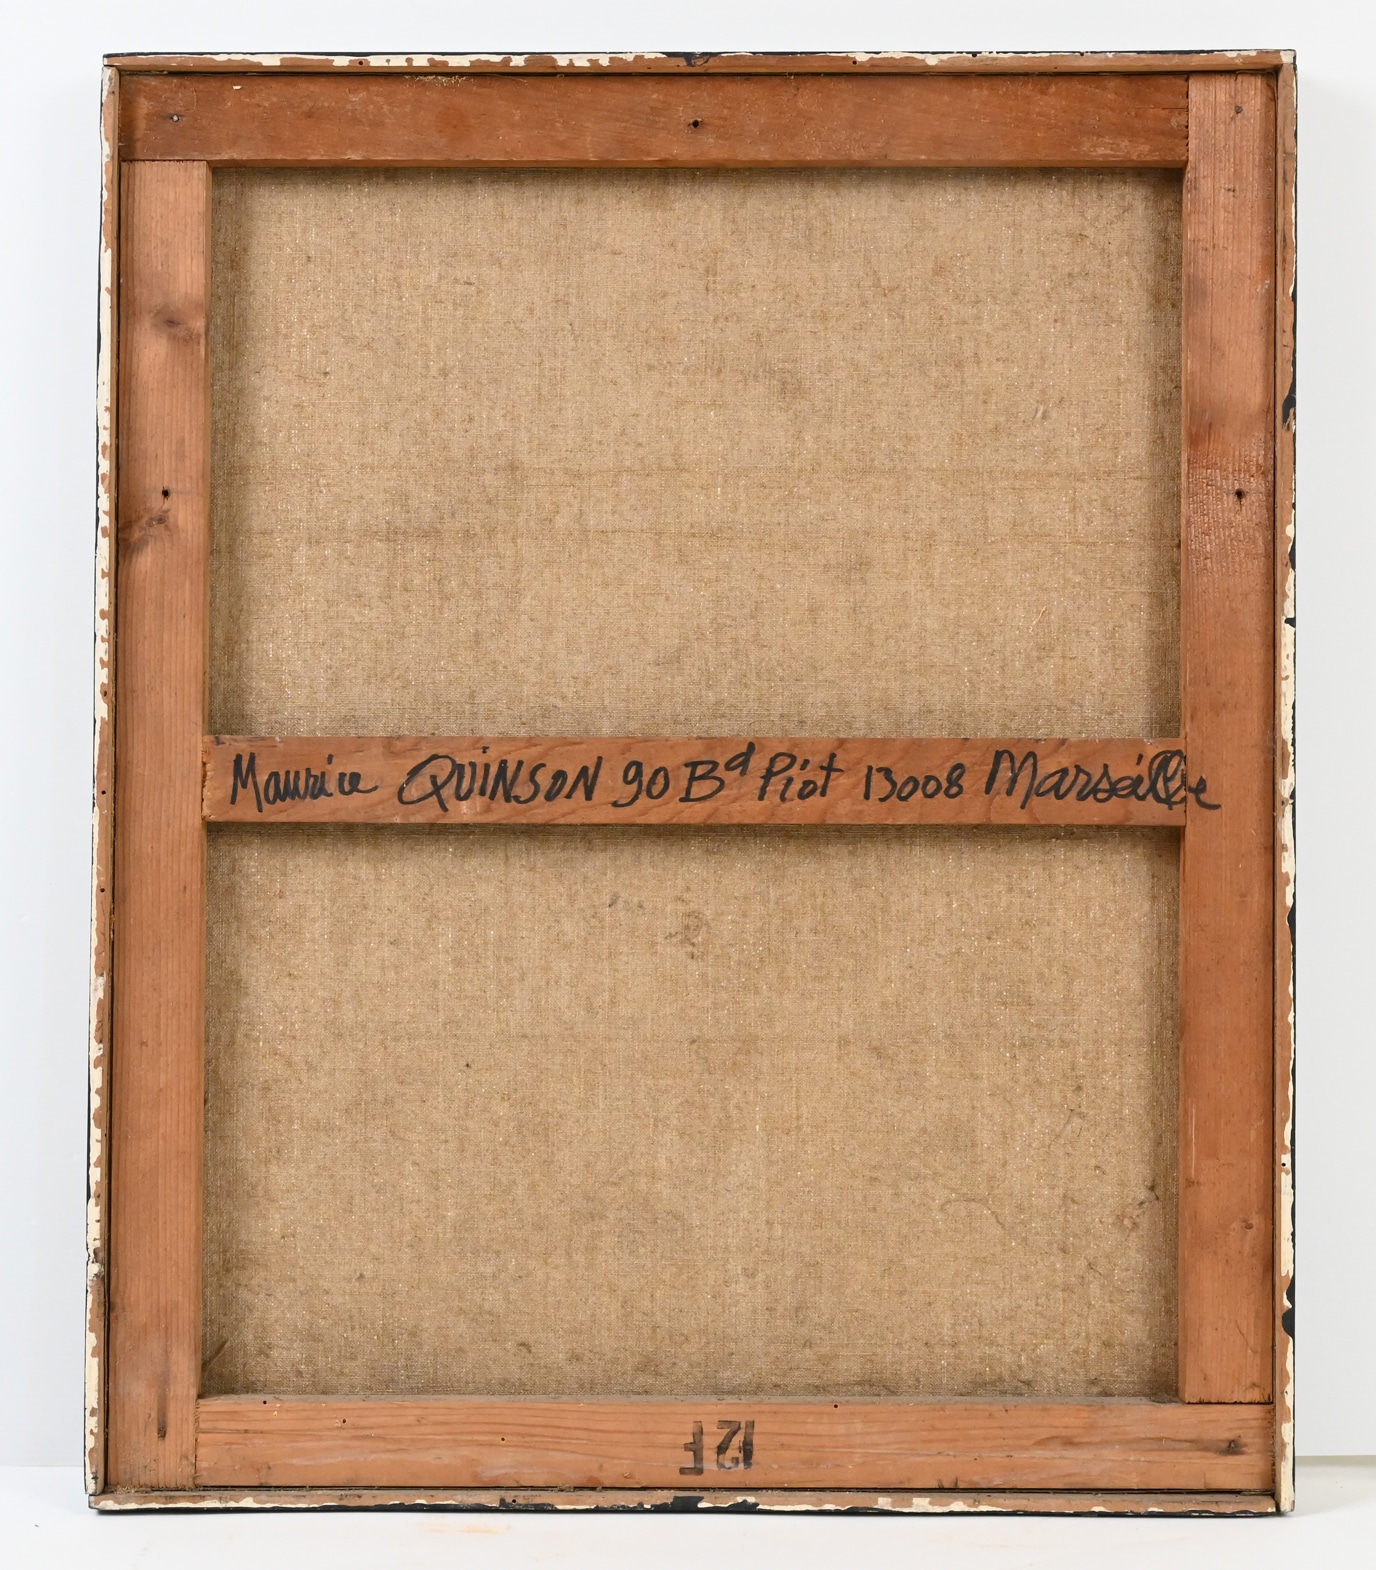 Maurice QUINSON 90 Bd Piot 13008 Marseille
12F